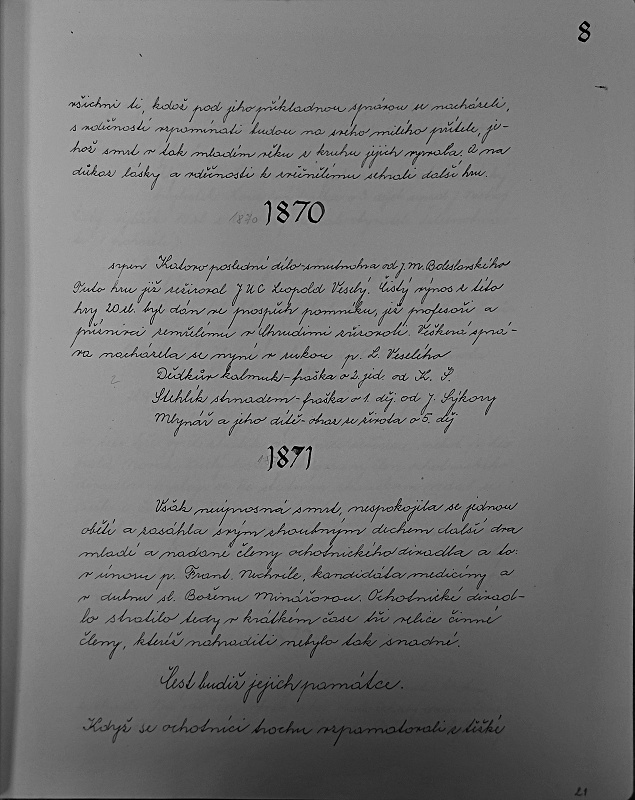 8
všichni ti, kdož pod jeho příkladnou správou se nacházeli,
s vděčností vzpomínati budou na svého milého přítele, je-
hož smrt v tak mladém věku z kruhu jejich vyrvala. A na
důkaz lásky a vděčnosti k zvěčnělému sehráli další hru.
1870 1870
srpen Katovo poslední dílo-smutnohra od J. M. Boleslavského
Tuto hru již režíroval JUC Leopold Veselý. Čistý výnos z této
hry 20 zl. byl dán ve prospěch pomníku, jež profesoři a
příznivci zemřelému v Chrudimi zůrovoli. Veškerá sprá-
va nacházela se nyní v rukou p. L. Veselého
2 Dědkův kalmuk-fraška o 2. jed. od K. Š.
Stehlík strnadem-fraška o 1. děj. od J. Sýkory
Mlynář a jeho dítě-obraz ze života o 5. děj
1871
Však neúprosná smrt, nespokojila se jednou
obětí a zasáhla svým zhoubným dechem další dva
mladé a nadané členy ochotnického divadla a to:
v únoru p. Frant. Nechvíle, kandidáta medicíny a
v dubnu sl. Boženu Minářovou. Ochotnické divad-
lo ztratilo tedy v krátkém čase tři velice činné
členy, kteréž nahraditi nebylo tak snadné.
Čest budiž jejich památce.
Když se ochotníci trochu vzpamatovali z těžké
21